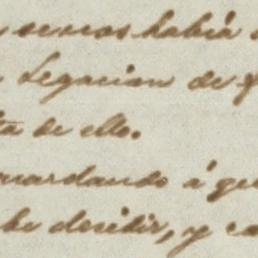 había
Legacion de
ta de ello.
uardando á que
be decidir, y ca